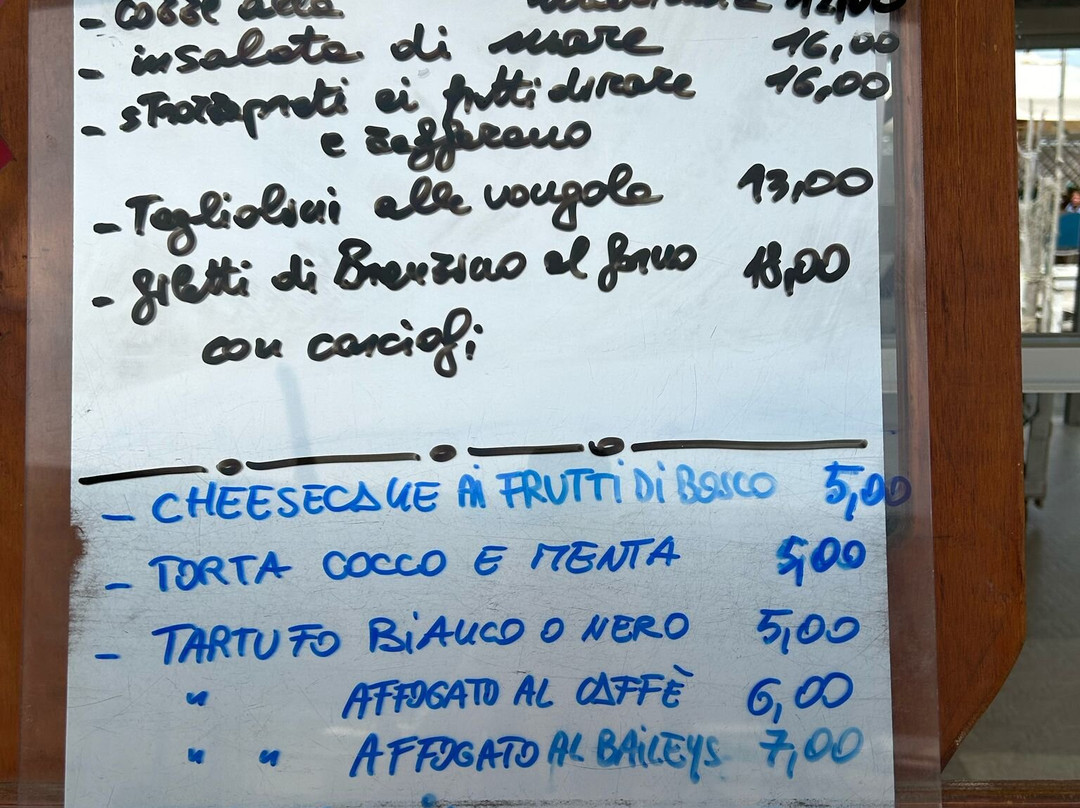 - cozze alla marinara 12,00
- insalata di mare 16,00
- strozzapreti ai frutti di mare 16,00
e zafferano
- Tagliolini alle vongole 13,00
- filetti di Branzino al forno 18,00
con carciofi
- CHEESECAKE AI FRUTTI DI BOSCO 5,00
- TORTA COCCO E MENTA 5,00
- TARTUFO BIANCO O NERO 5,00
" AFFOGATO AL CAFFÈ 6,00
" " AFFOGATO AL BAILEYS 7,00